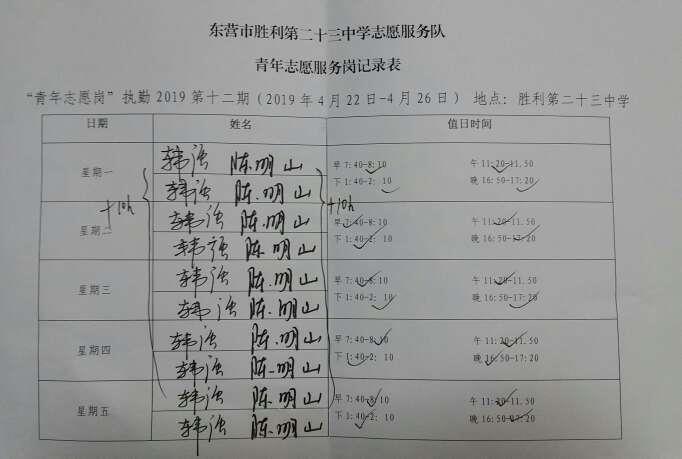 东营市胜利第二十三中学志愿服务队
青年志愿服务岗记录表
“青年志愿岗”执勤2019第十二期(2019年4月22日-4月26日) 地点:胜利第二十三中学
日期 姓名 值日时间
韩强 陈明山
星期一 早7:40-8:10 午11:20-11.50
韩强 陈明山 下1:40-2:10 晚16:50-17:20
+10h +10h
韩强 陈明山 早7:40-8:10 午11:20-11.50
星期二
韩强 陈明山 下1:40-2:10 晚16:50-17:20
韩强 陈明山 早7:40-8:10 午11:20-11.50
星期三
韩强 陈明山 下1:40-2:10 晚16:50-17:20
韩强 陈明山 早7:40-8:10 午11:20-11.50
星期四
韩强 陈明山 下1:40-2:10 晚16:50-17:20
韩强 陈明山 早7:40-8:10 午11:20-11.50
星期五
韩强 陈明山 下1:40-2:10 晚16:50-17:20